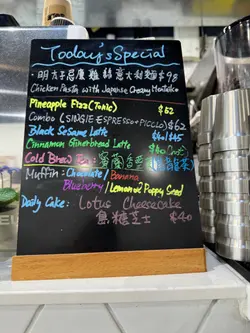 Today's Special
· 明太子忌廉雞絲意大利麵 $98
Chicken Pasta with Japanese Creamy Mentaiko
Pineapple Fizz (Tonic) $62
Combo (SINGLE ESPRESSO + PICCLO) $62
Black Sesame Latte $45
Cinnamon Gingerbread Latte $40
Cold Brew Tea:
Muffin: Chocolate/ Banana
Blueberry /Lemon & Poppy Seed
Daily Cake: Lotus Cheesecake
焦糖芝士 $40